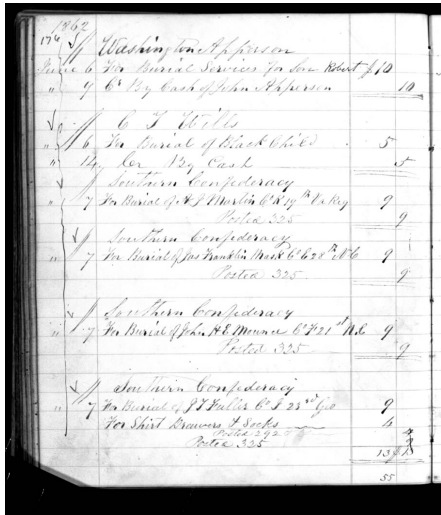 1862
176 Washington Apperson
June 6 For Burial Services for Son Robert 10
" 7 Cr By Cash of John Apperson 10
C T Wills
" 6 For Burial of Black Child 5
" 14 Cr By Cash 5
Southern Confederacy
" 7 For Burial of A J Martin Co K 19th Va Reg 9
Posted 325 9
Southern Confederacy
" 7 For Burial of Jas Franklin Co C 28th N C 9
Posted 325 9
Southern Confederacy
" 7 For Burial of John H E Co F 21st N.C 9
Posted 325 9
Southern Confederacy
" 7 For Burial of J T Fuller Co I 23rd Geo 9
For Shirt Drawers & Socks 4
Posted 292
Posted 325
13
55